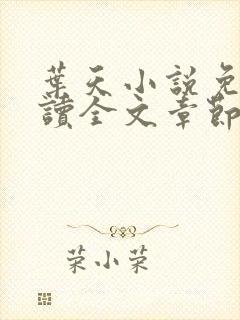 葉天小說免
讀全文章節
荣小荣